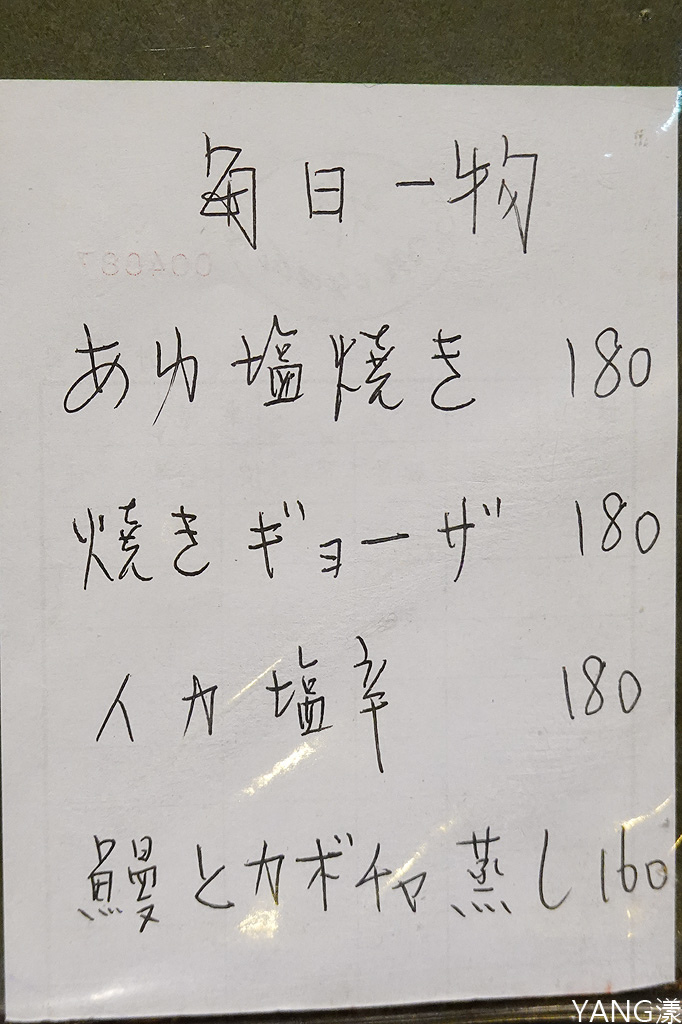 毎日一物
あゆ塩焼き 180
焼きギョーザ 180
イカ塩辛 180
鰻とカボチャ蒸し 160
YANG漾